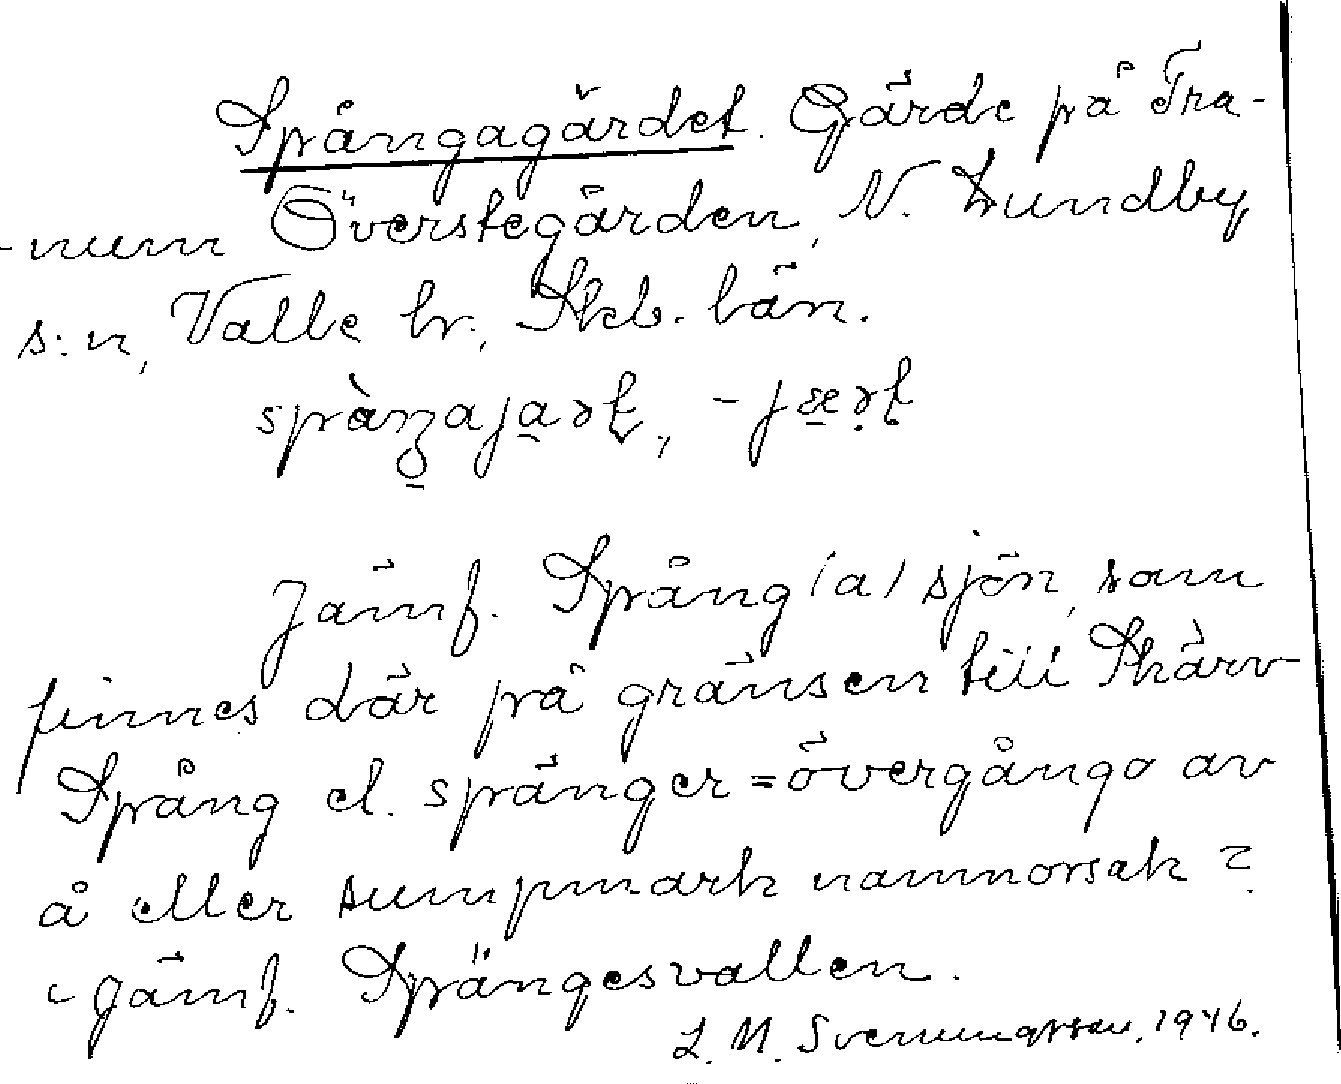 Spångagärdet. Gärde på Tra-
-num Överstegården, N. Lundby
s:n, Valle hr., Skb. län.
Jämf. Spång(a)sjön, som
finnes där på gränsen till Skärv
Spång el. spänger = övergång av
å eller sumpmark namnorsak?
jämf. Spängesvallen.
L. M. Svenungsson, 1946.